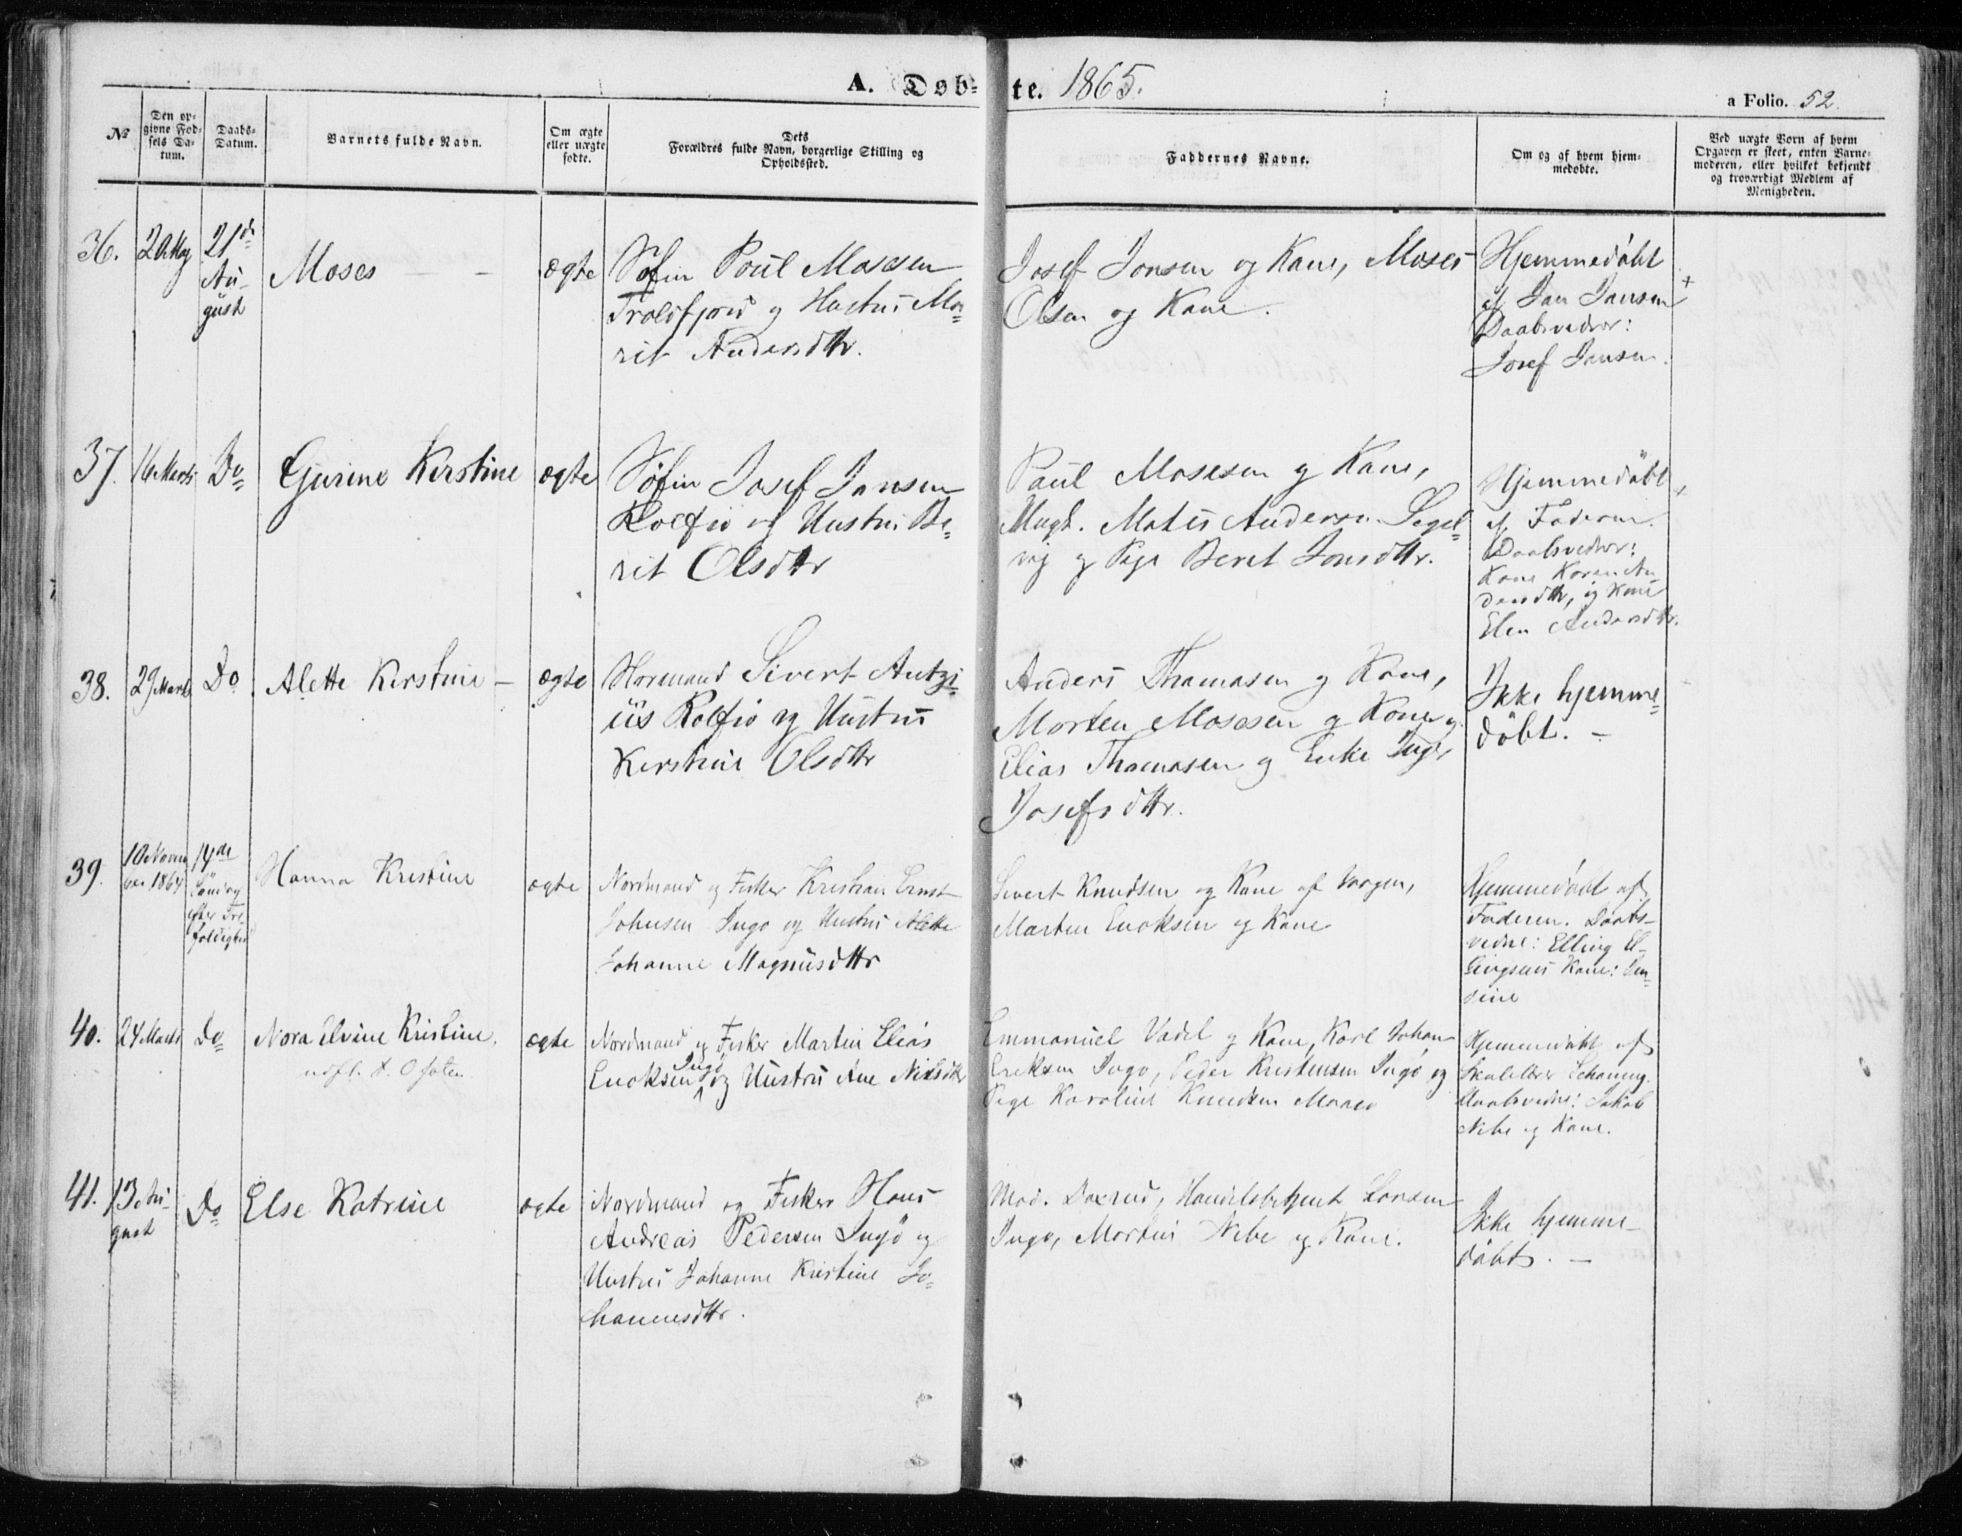 A. Døb-te. 1865.
a Folio. 52.
No
Den op-
givne Fød-
sels Da-
tum.
Daabs-
Datum.
Barnets fulde Navn.
Om ægte
eller uægte
fødte.
Dets
Forældres fulde Navn, borgerlige Stilling og
Opholdssted.
Faddernes Navne.
Om og af hvem hjem-
medøbte.
Ved uægte Børn af hvem
Opgaven er skeet, enten Barne-
moderen, eller hvilket bekjendt
og troværdigt Medlem af
Menigheden.
36.
21de
Au-
gust
Moses
ægte
Søfin Poul Mosesen
Troldfjord og Hustru Ma-
rit Andersdttr.
Josef Jonsen og Kone, Moses
Olsen og Kone.
Hjemmedøbt
af Jon Jansen
Daabsvidner:
Josef Jansen.
37.
16 Marts
Do
Gjurine Kerstine
ægte
Søfin Josef Jansen
Rolfsø og Hustru Be-
rit Olsdttr
Paul Mosesen og Kone,
Ungk. Mates Andersen Segel-
vig og Pige Beret Jonsdttr.
Hjemmedøbt
af Faderen.
Daabsvidner:
Kone Karen An-
dersdttr, og Kone
Elen Andersdttr.
38.
29 Marts
Do
Alette Kerstine
ægte
Normand Sivert Antzi-
us Rolfsø og Hustru
Kerstine Olsdttr
Anders Thomasen og Kone,
Morten Mosesen og Kone,
Elias Thomasen og Enke Inger
Josefsdttr.
Ikke hjemme-
døbt.
39.
10 Novem
ber 1864
14de
Søndag
efter Tre
foldighed
Hanna Kristine
ægte
Nordmand og Fisker Kristian Ernst
Johnsen Ingø og Hustru Alette
Johanne Magnusdttr
Sivert Knudsen og Kone af
Martin Enoksen og Kone
Hjemmedøbt af
Faderen. Daabs-
vidne: Elling El-
lingsens Kone:
40.
24 Marts
Do
Nora Elvine Kristine.
ægte
Nordmand og Fisker Martin Elias
Enoksen Ingø og Hustru Ane Nilsdttr
Emmanuel Vadel og Kone, Karl Johan
Eriksen Ingø, Peder Kristensen Ingø og
Pige Karoline Knudsen Maasø
Hjemmedøbt af
Skolelærer Schøning.
Daabsvidne: Jakob
Nibe og Kone.
41.
13 Au-
gust
Do
Else Katrine
ægte
Nordmand og Fisker Hans
Andreas Pedersen Ingø og
Hustru Johanne Kristine Jo-
hannesdttr.
Mad. Handelsbetjent Larsen
Ingø, Martin Nibe og Kone.
Ikke hjemme-
døbt.